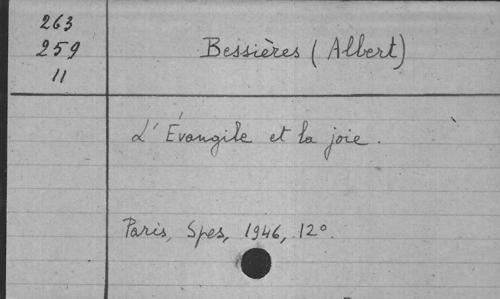 263
259
11
Bessières (Albert)
L'Évangile et la joie.
Paris, Spes, 1946, 12°.